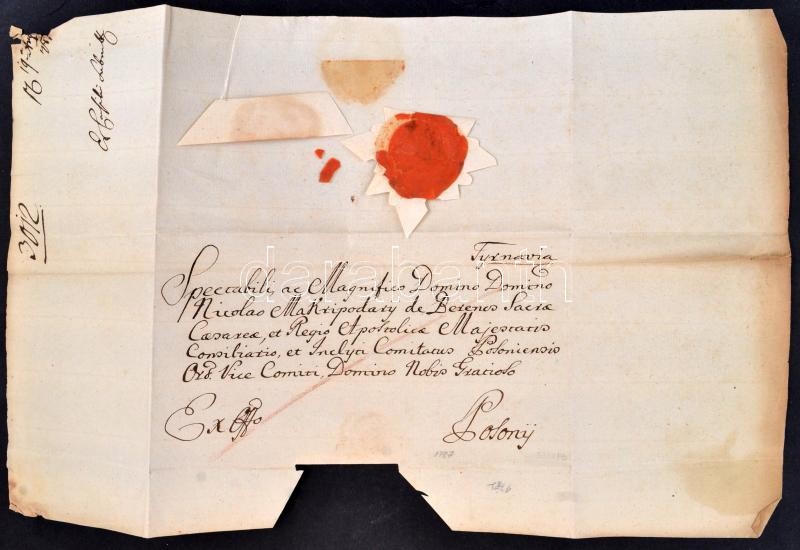 Tyrnavia
Spectabili, ac Magnifico Domino Domino
Nicolao Makripodary de Berenus Sacræ
Cæsareæ, et Regio Apostolicæ Majestatis
Consiliatio, et Inclyti Comitatus Posoniensis
Ord. Vice Comiti, Domino Nobis Gratioso
Ex Offo
Posonij
3012
1787
darabanth